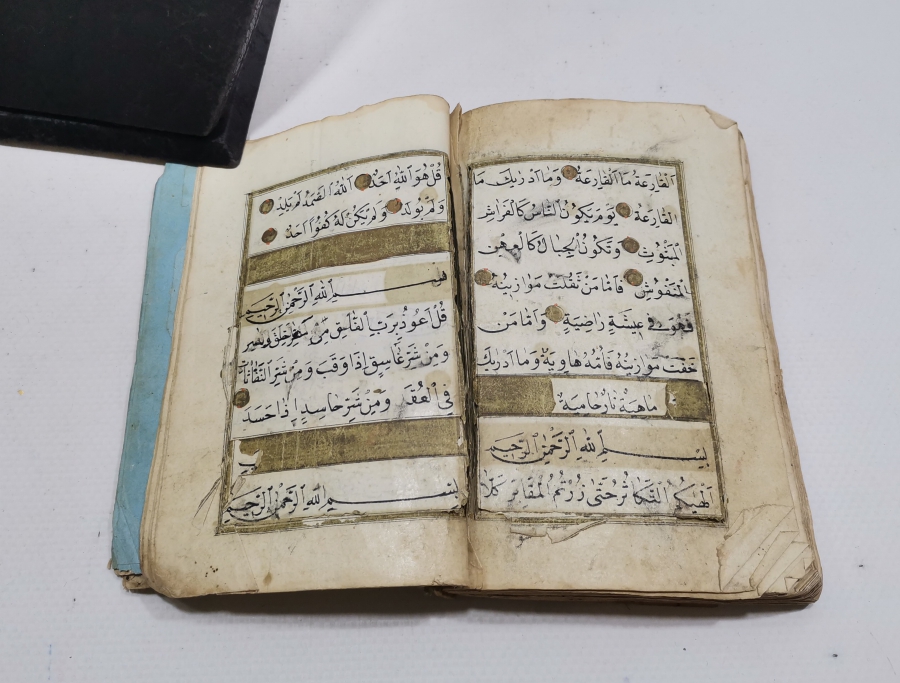 ٱلقارعة ما القارعة وما ادريك ما
القارعة يوم يكون الناس كالفراش
المبثوث وتكون الجبال كالعهن
المنفوش فاما من ثقلت موازينه
فهو في عيشة راضية واما من
خفت موازينه فامه هاوية وما ادريك
ماهية نار حامية
بسم الله الرحمن الرحيم
الهيكم التكاثر حتى زرتم المقابر كلا
قل هو الله احد الله الصمد لم يلد
ولم يولد ولم يكن له كفوا احد
بسم الله الرحمن الرحيم
قل اعوذ برب الفلق من شر ما خلق
ومن شر غاسق اذا وقب ومن شر النفاثات
في العقد ومن شر حاسد اذا حسد
بسم الله الرحمن الرحيم